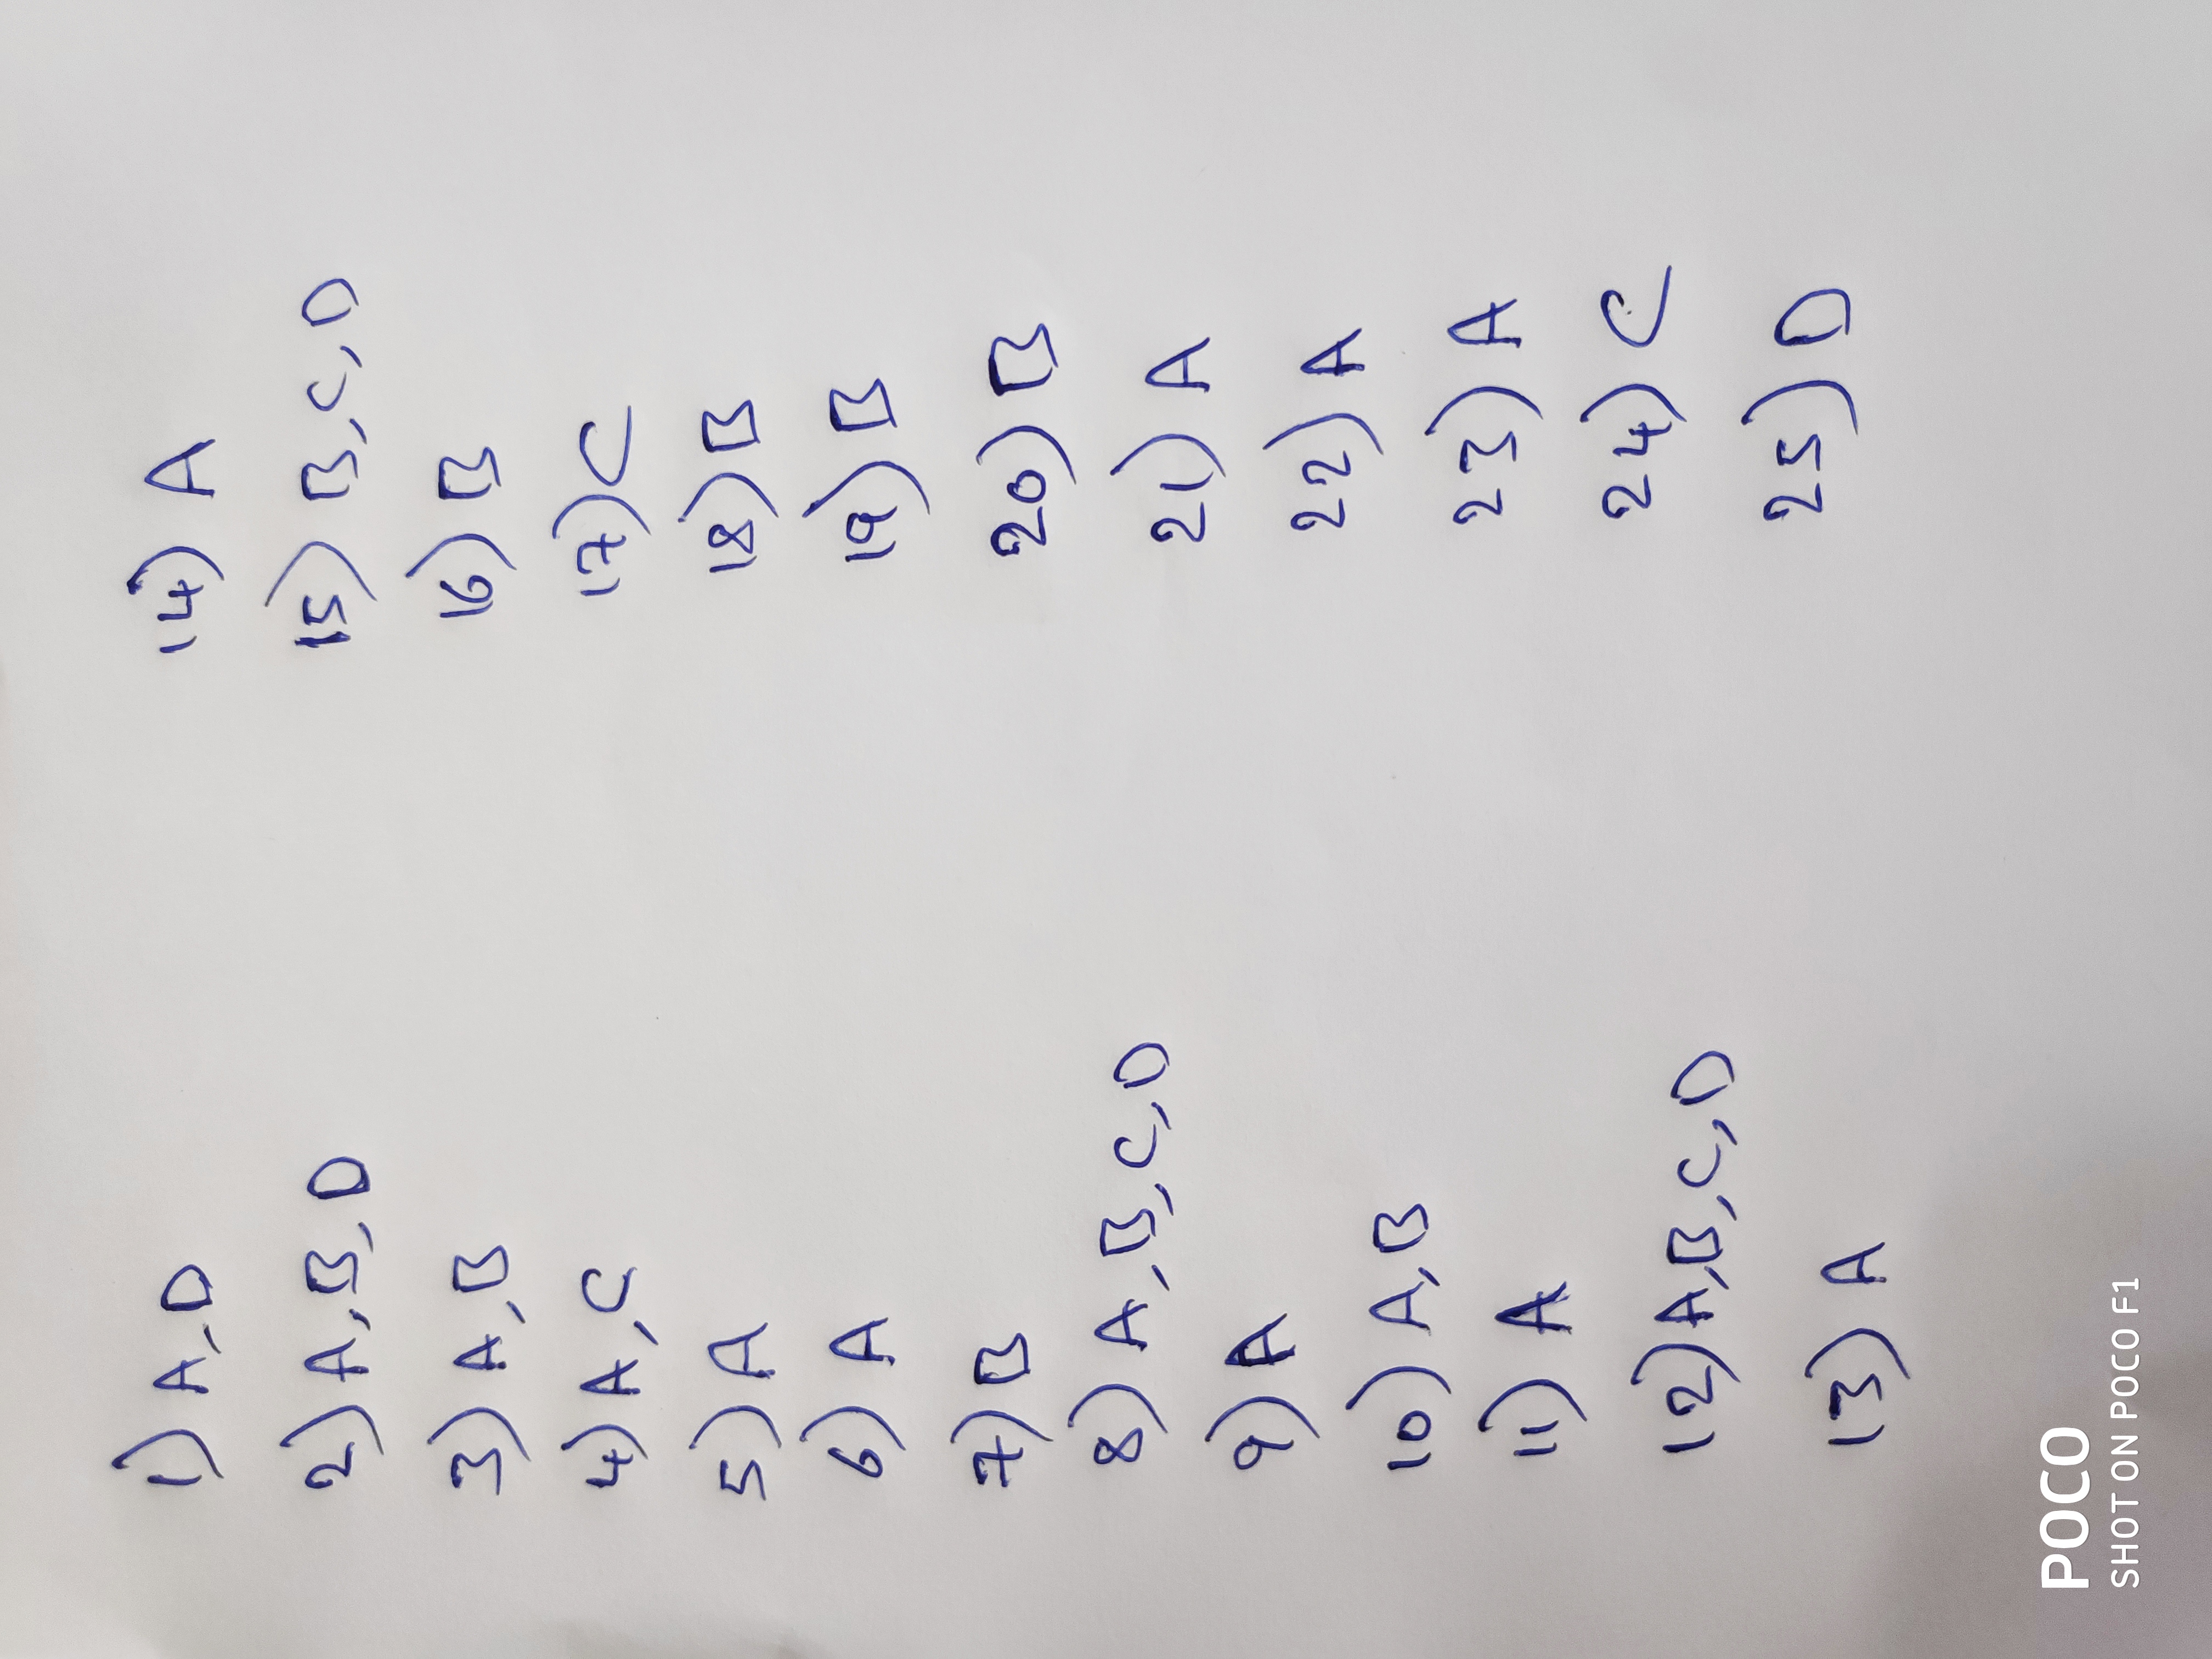 1) A, D
2) A, B, D
3) A, B
4) A, C
5) A
6) A
7) B
8) A, B, C, D
9) A
10) A, B
11) A
12) A, B, C, D
13) A
14) A
15) B, C, D
16) B
17) C
18) B
19) B
20) B
21) A
22) A
23) A
24) C
25) D
POCO
SHOT ON POCO F1